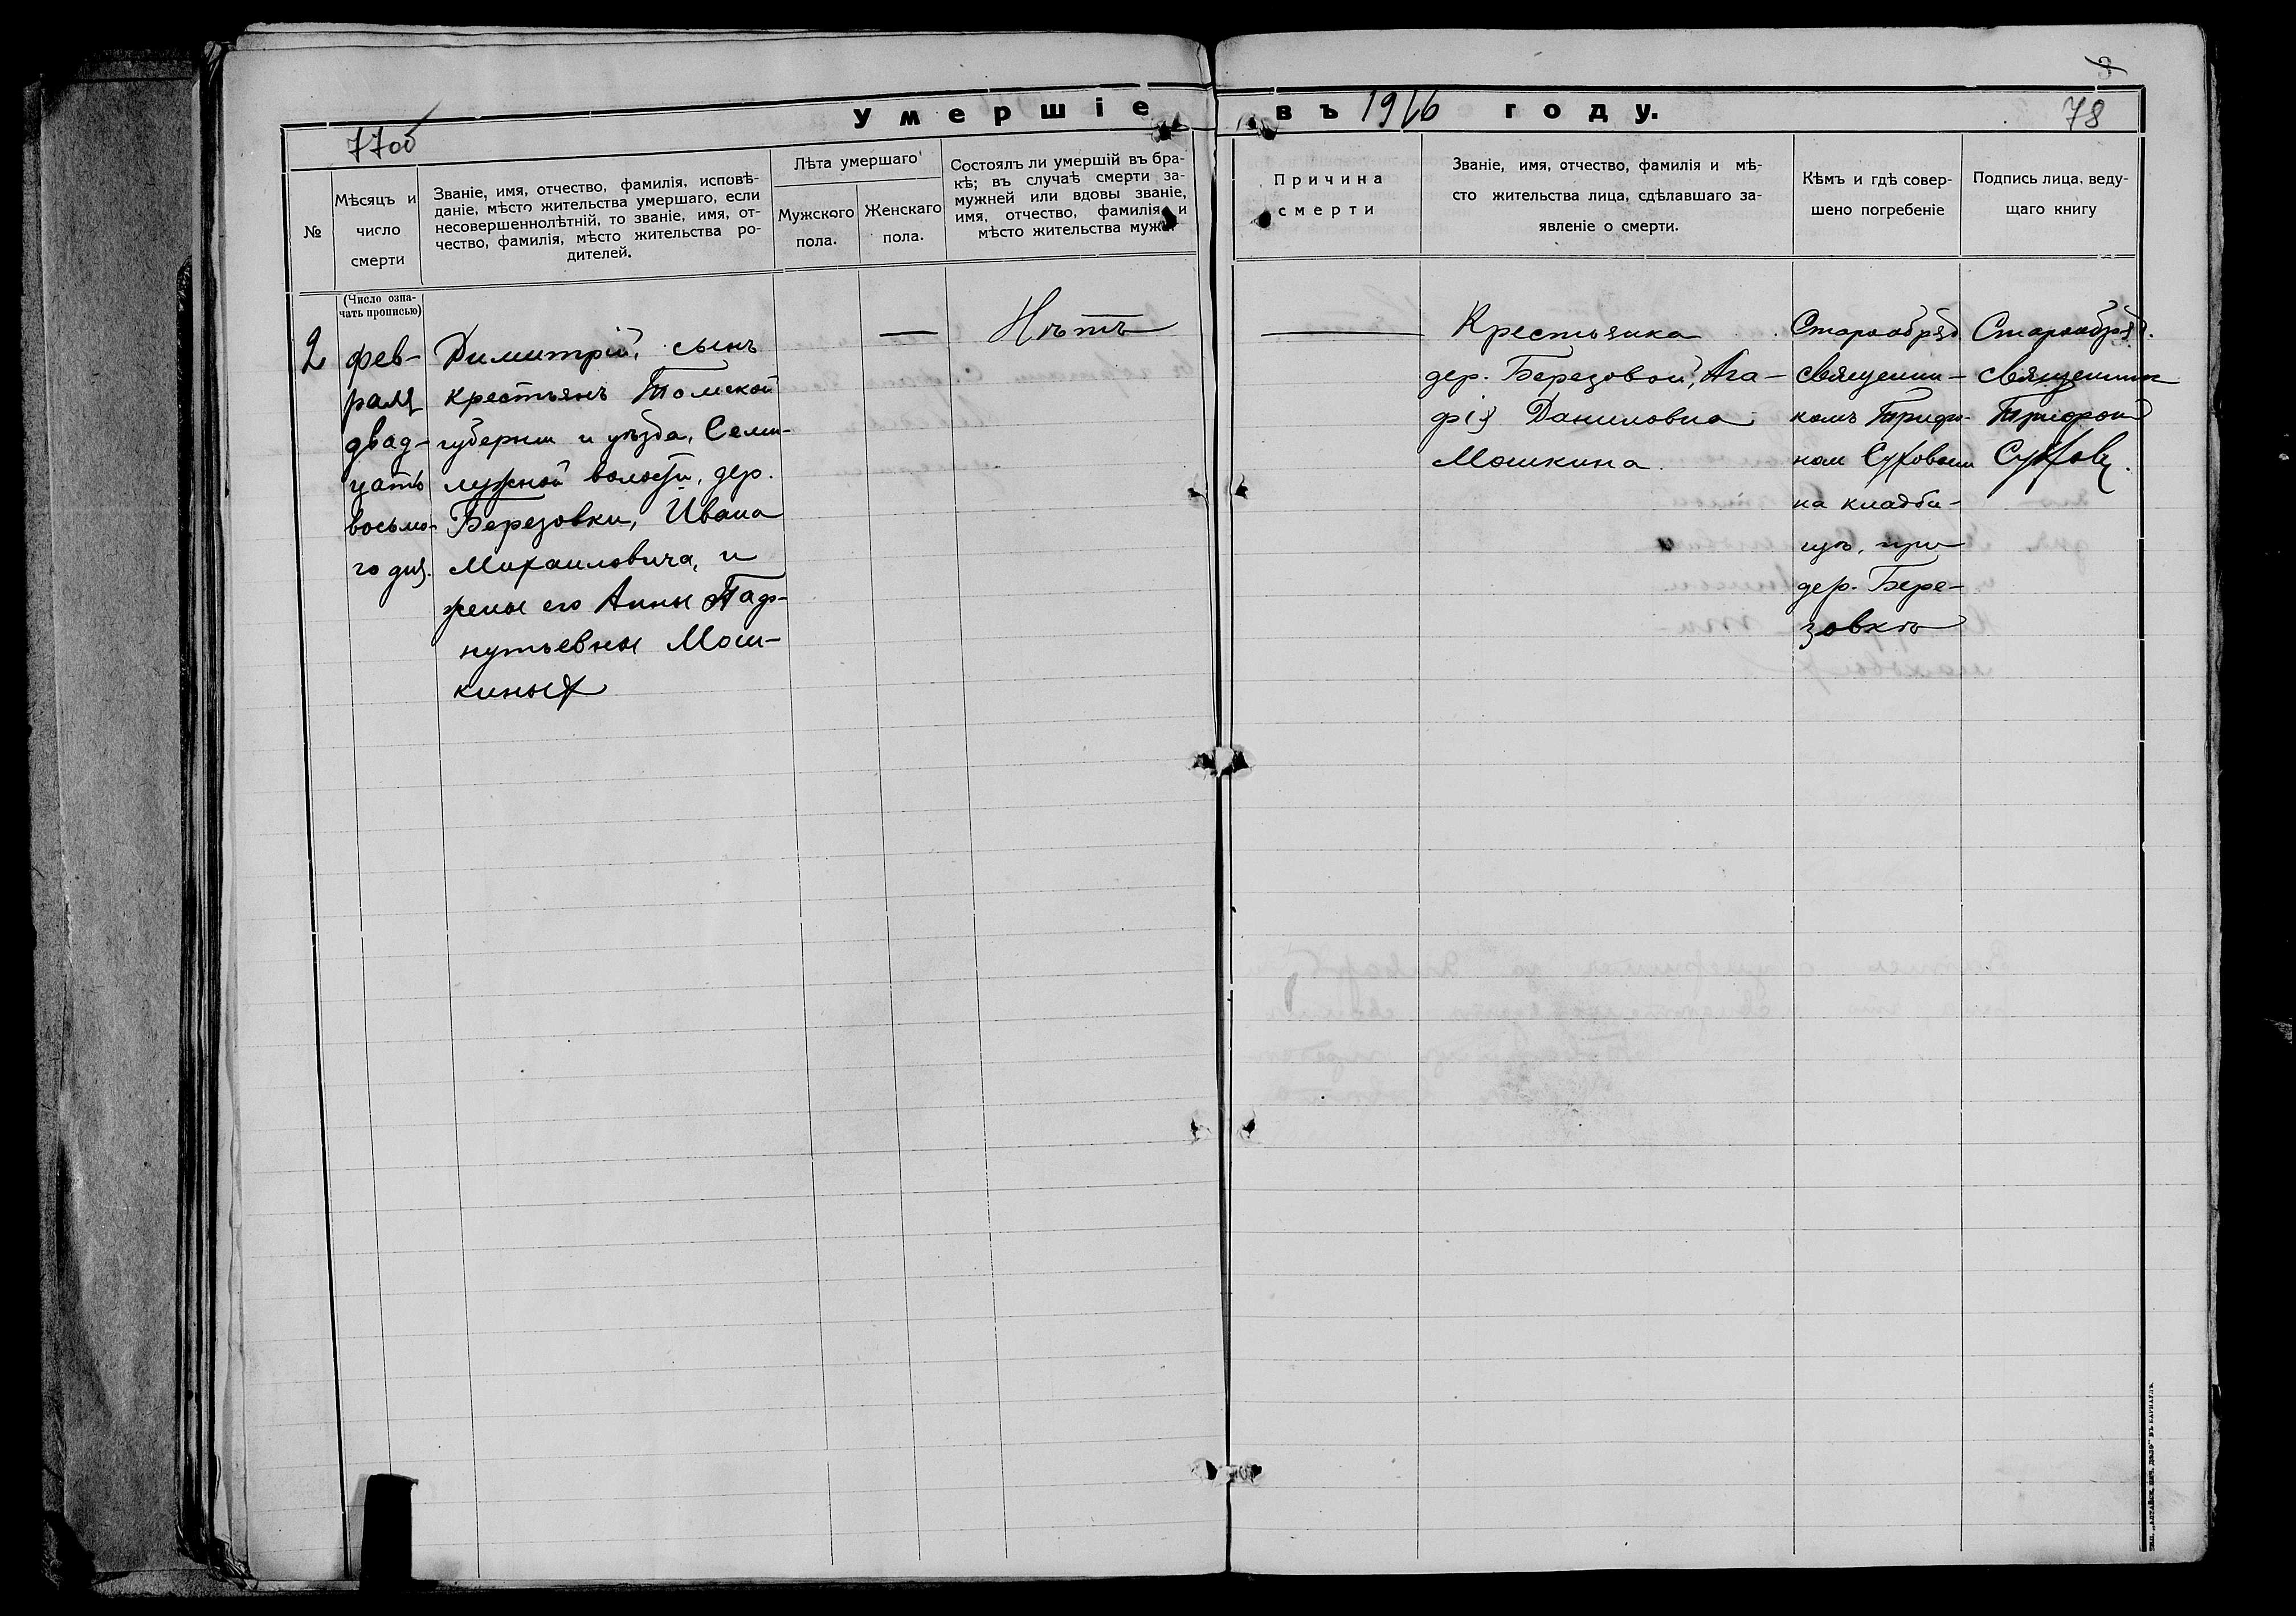 Умершіе въ 1916 году.
78
7700
№
Мѣсяцъ и
число
смерти
Званіе, имя, отчество, фамилія, исповѣ-
даніе, мѣсто жительства умершаго, если
несовершеннолѣтній, то званіе, имя, от-
чество, фамилія, мѣсто жительства ро-
дителей.
Лѣта умершаго
Мужского
пола.
Женскаго
пола.
Состоялъ ли умершій въ бра-
кѣ; въ случаѣ смерти за-
мужней или вдовы званіе,
имя, отчество, фамилія и
мѣсто жительства мужа
Причина
смерти
Званіе, имя, отчество, фамилія и мѣ-
сто жительства лица, сдѣлавшаго за-
явленіе о смерти.
Кѣмъ и гдѣ совер-
шено погребеніе
Подпись лица, веду-
щаго книгу
(Число озна-
чать прописью)
2
фев-
раля
двад-
цать
восьмо-
го дня.
Димитрій, сынъ
крестьянъ Томской
губерніи и уѣзда, Семи-
лужной волости, дер.
Березовки, Ивана
Михаиловича, и
жены его Анны Паф-
нутьевны Мош-
киных
—
Нѣтъ
—
Крестьянка
дер. Березовой, Ага-
фія Даниловна
Мошкина.
Старообряд.
священни-
комъ Трифо-
ном Суховым
на кладби-
щѣ, при
дер. Бере-
зовкѣ
Старообряд.
священник
Трифон
Сухов.
ТИП. „АЛТАЙСК. ПЕЧ. ДѢЛО" ВЪ БАРНАУЛѢ.